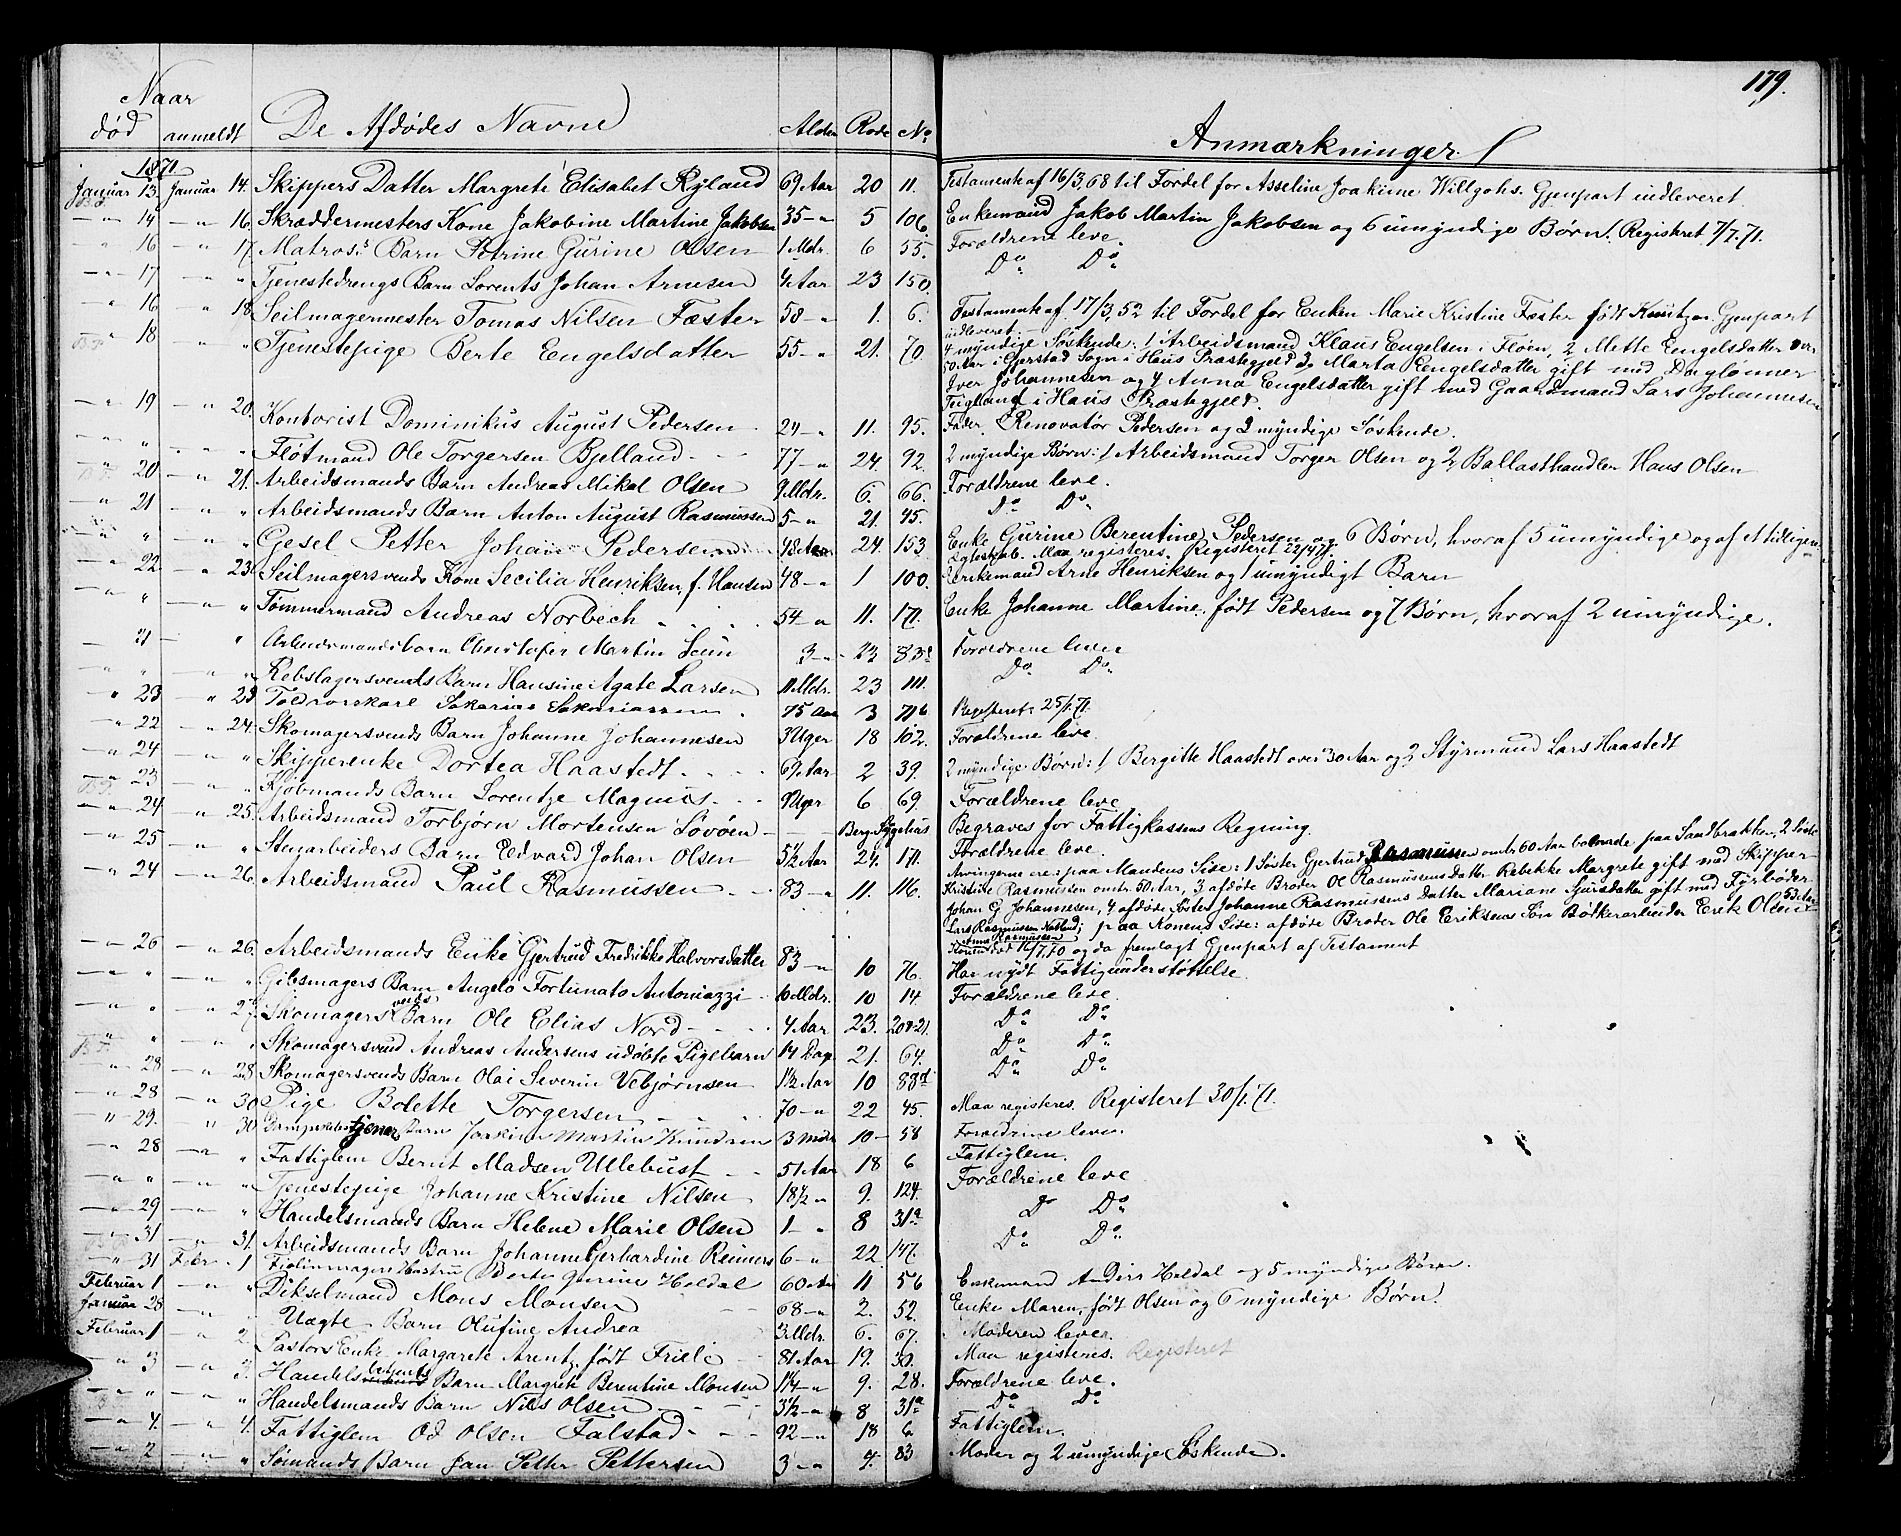 179.
Naar
død anmeldt De Afdødes Navne Alder Rode No Anmærkninger
1871
Januar 13. Januar 14. Skippers Datter Margrete Elisabet Ryland 69 Aar 20 11. Testamente af 16/3,68 til Fordel for Asseline Joakime Willgohs. Gjenpart udleveret.
—"— 14 —"— 16. Skræddermesters Kone Jakobine Martine Jakobsen 35 —"— 5 106. Enkemand Jakob Martin Jakobsen og 6 umyndige Børn. Registret 7/7.71.
" 16 " 17. Matros's Barn Petrine Gurine Olsen 1 Mdr. 6 55. Forældrene leve.
—"— 17 —"— " Tjenestedrengs Barn Lorents Johan Arnesen 4 Aar 23 150. Do Do
—"— 16 —"— 18. Seilmagermester Tomas Nilsen Fæster 58 —"— 1. 6. Testamente af 17/3,52 til Fordel for Enken Marie Kristine Fæster født Gjenpart
udleveret.
" 18 —"— " Tjenestepige Berte Engelsdatter 55 —"— 21. 70. 4 myndige Søskende: 1 Arbeidsmand Klaus Engelsen i Fløen, 2 Mette Engelsdatter over
50 Aar i Gjerstad Sogn i Haus Præstegjeld 3, Marta Engelsdatter gift med Dagleuner
Iver Johannesen og 4 Anna Engelsdatter gift med Gaardmand Lars Johannesen
Teigland i Haus Præstegjeld.
—"— 19 —"— 20. Kontorist Dominikus August Pedersen 24 —"— 11. 95. Fader, Renovatør Pedersen og 3 myndige Søskende.
—"— " —"— " Fløtmand Ole Torgersen Bjelland 77 —"— 24. 92. 2 myndige Børn: 1 Arbeidsmand Torger Olsen og 2, Ballasthandler Hans Olsen
—"— 20 —"— 21. Arbeidsmands Barn Andreas Mikal Olsen 9 Mdr. 6. 66. Forældrene leve.
" 21 —"— " Arbeidsmands Barn Anton August Rasmussen 5 —"— 21. 45. Do Do
—"— " —"— " Gesel Petter Johan Pedersen 48 Aar 24. 153 Enke Gurine Berentine Pedersen og 6 Børn, hvoraf 5 umyndige og af et tidligere
Ægteskab. Maa registeres. Registeret 22/4 71.
—"— 22 —"— 23. Seilmagersvends Kone Secilia Henriksen, f. Hansen 48 —"— 1 100. Enkemand Arne Henriksen og 1 umyndigt Barn
—"— " —"— " Tømmermand Andreas Norbech 54 —"— 11. 171. Enke Johanne Martine, født Pedersen og 7 Børn, hvoraf 2 umyndige.
—"— 21 — " Arbeidsmandsbarn Christofer Martin 3 —"— 23 83a Forældrene lever
" " " " Rebslagersvends Barn Hansine Agate Larsen 11 Mdr. 23 111. Do Do
" 23 " 23 Toldrorskarl Sakarias Sakariassen 75 Aar 3 71b Registeret 25/1.71.
—"— 22 —"— 24. Skomagersvends Barn Johanne Johannesen 3 Uger 18 102. Forældrene leve.
—"— 24 —"— " Skipperenke Dortea Haastedt 69 Aar 2 39. 2 myndige Børn: 1 Bergitte Haastedt over 30 Aar og 2 Styrmand Lars Haastedt
" 23 —"— " Kjøbmands Barn Lorentze Magnus 9 Uger 6 69. Forældrene leve
—"— 24 —"— 25. Arbeidsmand Torbjørn Mortensen Løvøen — Berg. Sygehus Begraves for Fattigkassens Regning.
—"— 25 —"— " Stenarbeiders Barn Edvard Johan Olsen 5½ Aar 24. 171. Forældrene leve.
—"— 24 —"— 26. Arbeidsmand Paul Rasmussen 83 —"— 11. 116. Arvingerne ere: paa Mandens Side: 1 Søster Gjertrud Rasmussen omtr. 60 Aar boende paa Sandbrakken, 2 Søster
Kristine Rasmussen omtr. 50 Aar, 3 afdøde Broder Ol Rasmussens Datter Rebekke Margrete gift med Skipper
Johan G Johannesen, 4 afdøde Søster Johanne Rasmussens Datter Mariane gift med Fyrbøder
Lars Rasmussen Natland; paa Konens Side: afdøde Broder Ole Eriksens Søn Bødkerarbeider Erik Olsen 53 Aar
Anna Rasmussen
Konen død 16/7,70 og da fremlagt Gjenpart af Testament
—"— 26 —"— 26. Arbeidsmands Enke Gjertrud Fredrikke Halvorsdatter 83 —"— 10 76. Har nydt Fattigunderstøttelse.
—"— " —"— " Gibsmagers Barn Angelo Fortunato Antoniazzi 10 Mdr. 10 14. Forældrene leve.
—"— " —"— 27. Skomagersvends Barn Ole Elias Nord 4 Aar 23. 20 Do Do
" " —"— " Skomagersvend Andreas Andersens udøbte Pigebarn 14 Dag. 21. 64. Do Do
—"— 28 —"— 28. Skomagersvends Barn Olai Severin Vebjørnsen 1½ Aar 10 88d Do Do
—"— 28 —"— 30. Pige Bolette Torgersen 70 —"— 22 45. Maa registeres. Registeret 30/1.71.
" 29. " 30. tjener Barn Joakim Martin Knudsen 3 Mdr 10 — 58 Forældrene lever.
—"— 28 —"— " Fattiglem Bernt Madsen Ullebust 51 Aar 18 6 Fattiglem.
—"— " —"— " Tjenestepige Johanne Kristine Nilsen 18½ —"— 9. 124. Forældrene leve
—"— 29 —"— " Handelsmands Barn Helene Marie Olsen 1 —"— 8 31a Do Do
—"— 31 —"— 31. Arbeidsmands Barn Johanne Gerhardine Reimers 6 —"— 22. 147. Do Do
" 31 Febr. 1 Fiolinmagers Hustru Berte Gurine Heldal 60 Aar 11 56 Enkemand Anders Heldal og 5 myndige Børn.
Februar 1 —"— " Dikselmand Mons Monsen 68 —"— 2. 52. Enke Maren, født Olsen og 6 myndige Børn.
Januar 28 —"— " Uægte Barn Olufine Andrea 3 Mdr. 6. 67. Moderen lever.
Februar 1 —"— 2. Pastors Enke Margarete Arentz, født Friele 81 Aar 19. 30. Maa registeres. Registeret
—"— 3 —"— 3. Handelsbetjents Barn Margrete Berentine Monsen 1¼ —"— 9. 28. Forældrene leve.
—"— " —"— " Handelsmands Barn Nils Olsen 3½ —"— 8 31a Do Do
—"— 4. —"— 4. Fattiglem Od Olsen Falstad 92 —"— 18 6 Fattiglem.
—"— 2 —"— " Sømands Barn Jan Petter Pettersen 3 —"— 4. 83 Moder og 2 umyndige Søskende.